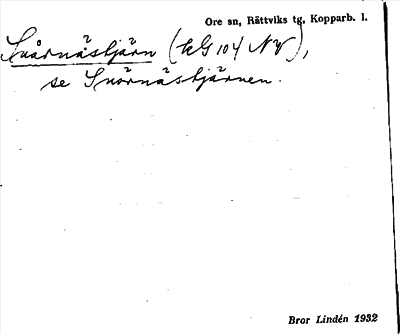 Ore sn, Rättviks tg, Kopparb. l.
Snårnästjärn (EG 104 NV),
se Snörnästjärnen.
Bror Lindén 1932